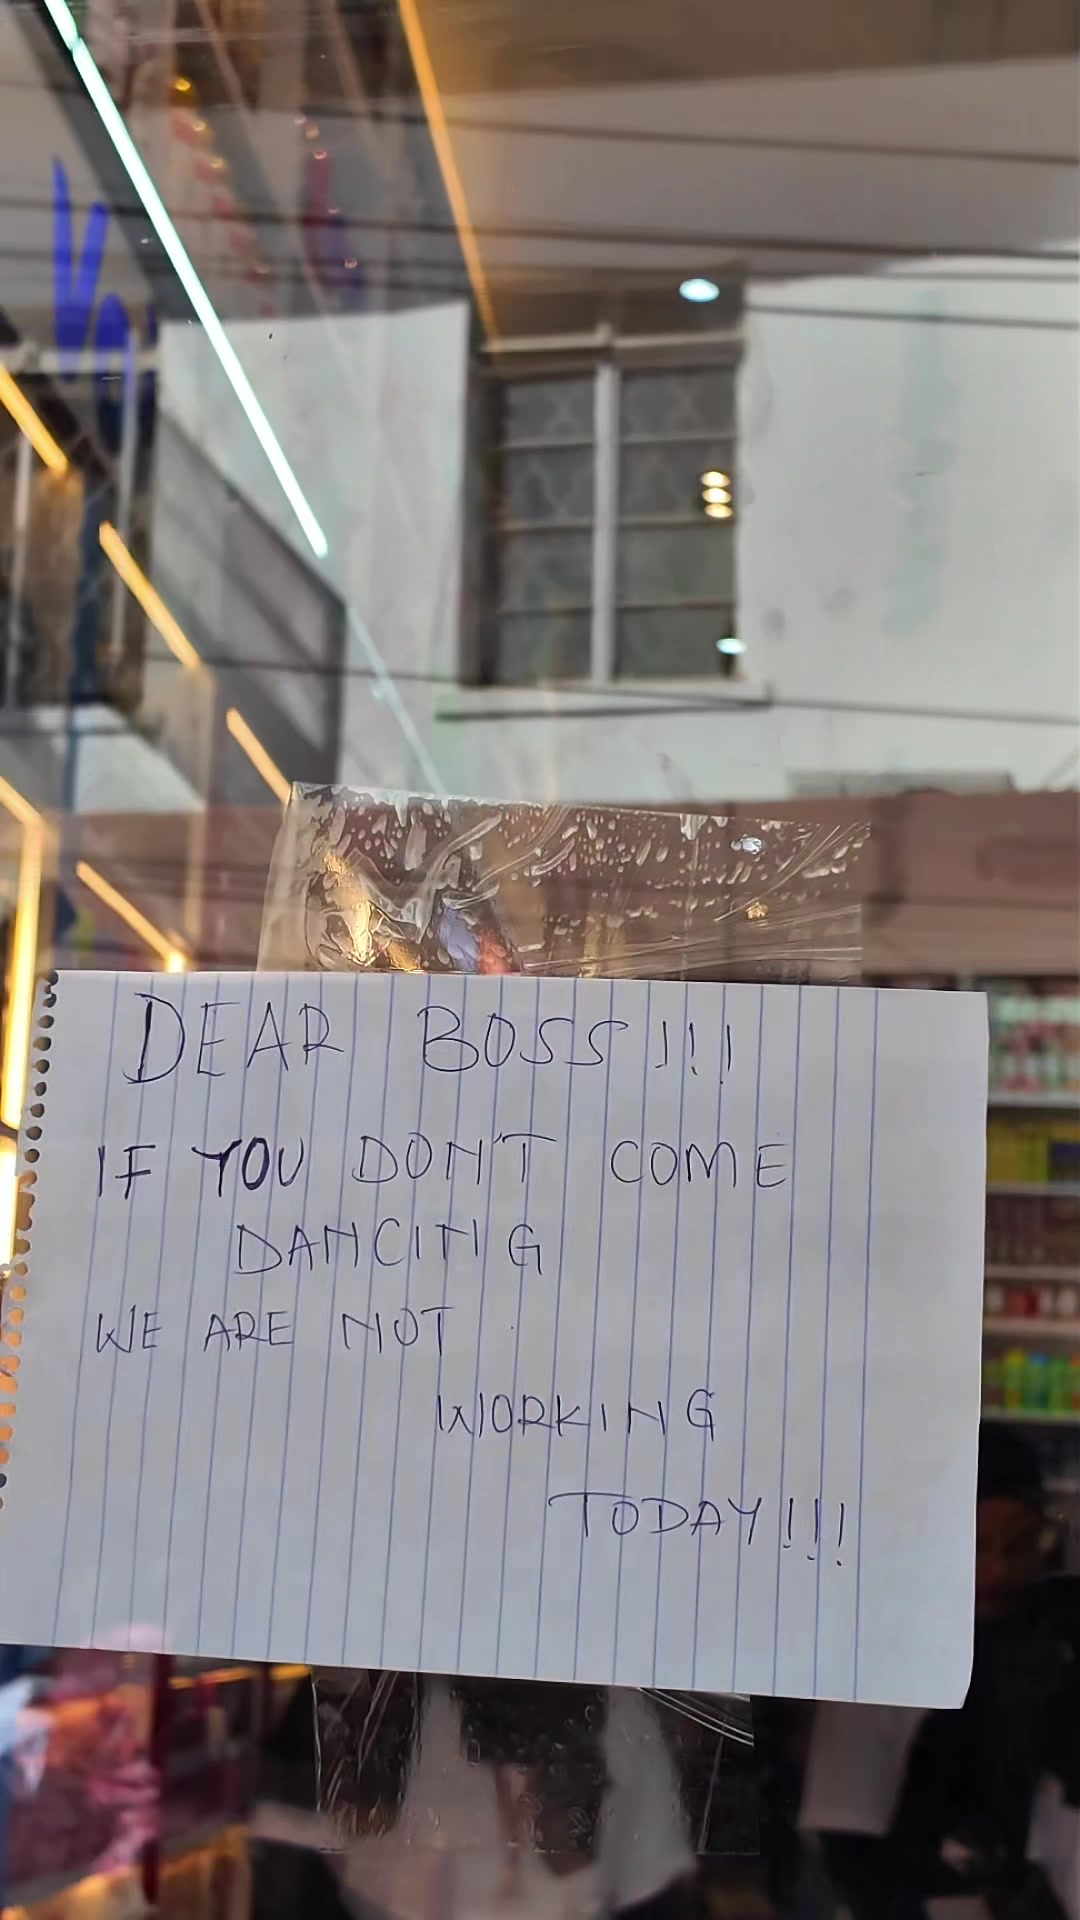 DEAR BOSS!!!
IF YOU DON'T COME
DANCING
WE ARE NOT
WORKING
TODAY!!!